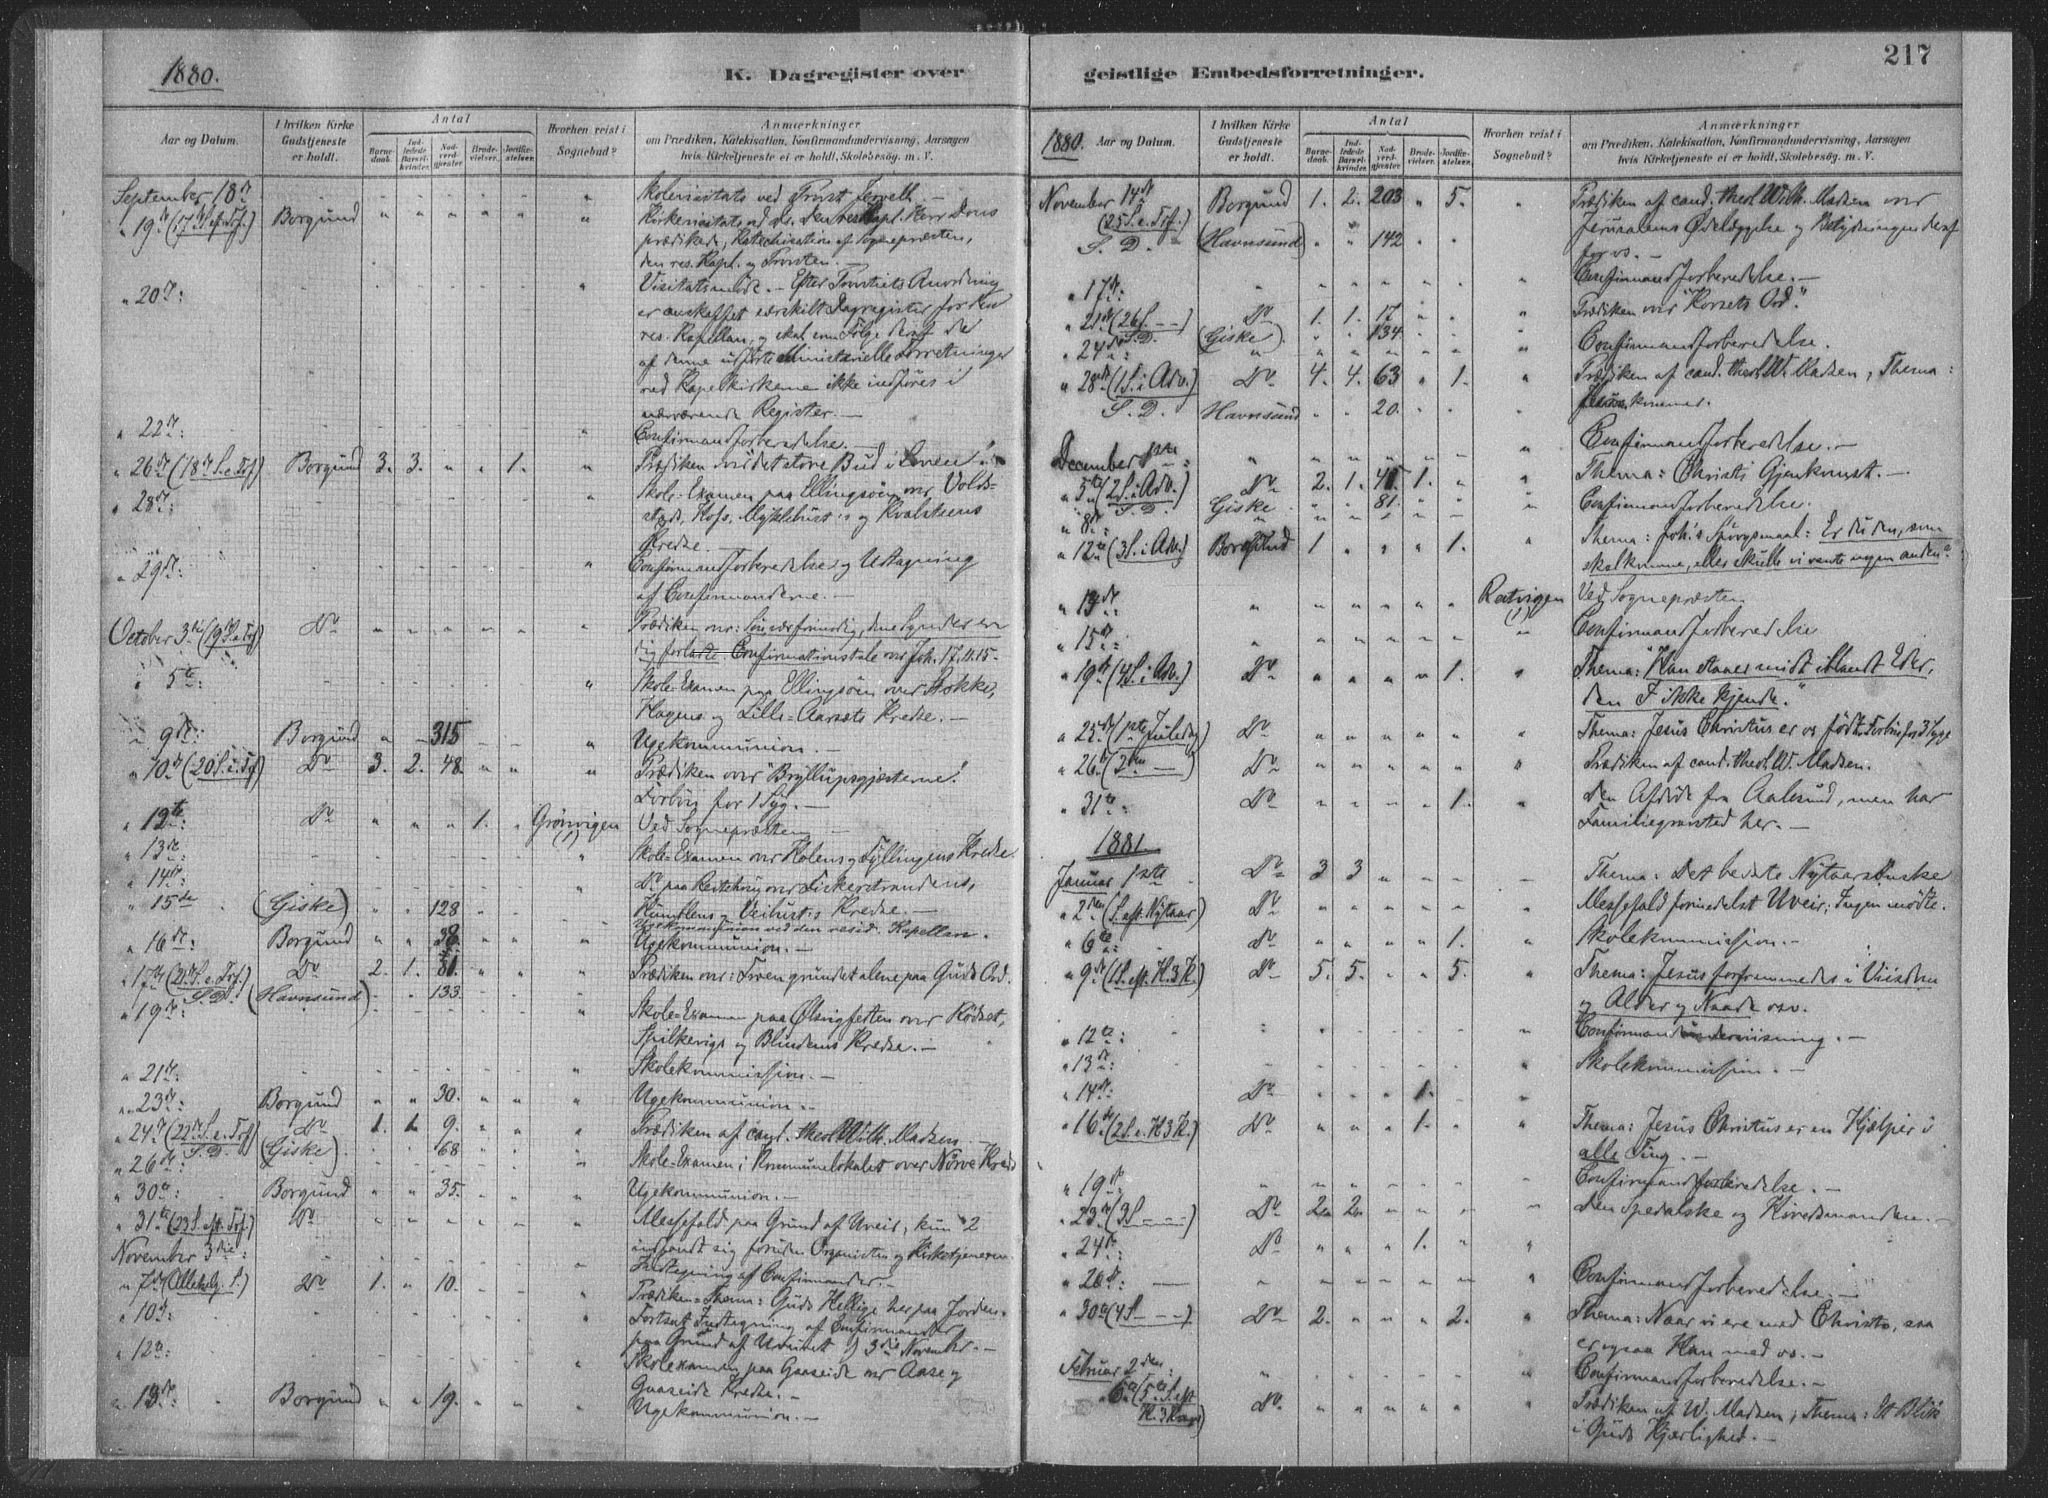 1880.
K. Dagregister over
Aar og Datum.
I hvilken Kirke Gudstjeneste er holdt.
Antal
Barnedaab.
Indledede Barselkvinder.
Nadverdgjester
Brudevielser.
Jordfæstelser.
Hvorhen reist i Sognebud?
Anmærkninger
om Prædiken, Katekisation, Konfirmandundervisning, Aarsagen
hvis Kirketjeneste ei er holdt, Skolebesøg. m. V.
September 18de " Skolevisitats ved Provst
" 19de (17de S. ef. Trf.) Borgund " " " " " " Kirkevisitats ved ds. Den res. Kapl. Herr Dons
prædikede, Katechisation af Sognepræsten,
den res. Kapl. og Provsten. —
" 20de: " Visitatsmøde. — Efter Provstiets Anordning
er anskaffet særskilt Dagregister for den
res. Kapellan, og skal som Følge deraf de
af denne udførte Ministerielle Forretninger
ved Kapelkirkerne ikke indføres i
nærværende Register. —
" 22de: " Confirmandforberedelse. —
" 26de (18de S. e. Trf.) Borgund 3. 3. " " 1. " Prædiken over det store Bud i Loven.
" 28de: " Skole-Examen paa Ellingsøen over Volds-
Hofs, Myklebust's og Kvalsteens
Kredse. —
" 29de: " Confirmandforberedelse og Udtagning
af Confirmanderne. —
October 3die (19de S. e. Trf.) Do " " " " " " Prædiken over: Søn vær frimodig, dine Synder ere
dig forladte. Confirmationstale over Joh. 17, 11. 15.
" 5te: " Skole-Examen paa Ellingsøen over Stokke,
Hagens og Lille-Aarsæts Kredse. —
" 9de: Borgund " — 315 " Ugekommunion. —
" 10de (20 S. e. Trf.) Do 3. 2. 48. " " " Prædiken over "Bryllupsgjæsterne".
Forbøn for 1 Syg. —
" 12te: Do " " " 1. " Grønvigen (1) Ved Sognepræsten —
" 13de: " Skole-Examen over Holens og Fyllingens Kredse.
" 14de: " Do paa over Fiskerstrandens,
" 15de (Giske) " " 128 Humblens og Veibust's Kredse. —
Ugekommunion ved den resid. Kapellan.
" 16de: Borgund " " 38. " " " Ugekommunion. —
" 17de (21de S. e. Trf.) Do 2. 1. 81. " " " Prædiken over: Troen grundet alene paa Guds Ord.
S. D. (Havnsund) " " 133.
" 19de: " Skole-Examen paa over Rødset,
Spilkevigs og Blindems Kredse. —
" 21de: " Skolekommission. —
" 23de: Borgund " " 30. " " " Ugekommunion. —
" 24de (22de S. e. Trf.) Do 1. 1. 9. " " " Prædiken af cand. theol. Wilh. Madsen. —
S. D. (Giske) " " 68
" 26de: " Skole-Examen i Kommunelokalet over Nørve Kreds
" 30te: Borgund " " 35. " " " Ugekommunion. —
" 31te (23 S. eft. Trf.) Do " " " " " " Messefald paa Grund af Uveir, kun 2
indfandt sig foruden Organisten og Kirketjeneren.
November 3die: Indtegning af Confirmander. —
" 7de (Allehelg. S.) Do 1. " 10. " Prædiken-Thema: Guds Hellige her paa Jorden.
" 10de: Fortsat Indtegning af Confirmander
paa Grund af Uveiret d. 3die Novembr. —
" 12te: " Skolexamen paa Gaaseide over Aase og
Gaaseide Kredse. —
" 13de Borgund " " 19. " " " Ugekommunion. —
217
geistlige Embedsforretninger.
1880.
Aar og Datum.
I hvilken Kirke Gudstjeneste er holdt.
Antal
Barnedaab.
Indledede Barselkvinder.
Nadverdgjester.
Brudevielser.
Jordfæstelser.
Hvorhen reist i Sognebud?
Anmærkninger
om Prædiken, Katekisation, Konfirmandundervisning, Aarsagen
hvis Kirketjeneste ei er holdt, Skolebesøg. m. V.
November 14de Borgund 1. 2. 203 " 5. " Prædiken af cand. theol. Wilh. Madsen over
(25 S. e. Trf.) Jerusalems Ødelæggelse og Betydningen deraf
S. D. (Havnsund) " " 142 " " for os. —
" 17de: " " " " " " " Confirmandforberedelse. —
" 21de (26 S. — —) Do 1. 1. 17 " " " Prædiken over "Korsets Ord".
S. D. (Giske) " " 134. " "
" 24de: " " " " " " " Confirmandforberedelse.
" 28de (1 S. i Adv.) Do 4. 4. 63 " 1. " Prædiken af cand. theol. W. Madsen, Thema:
S. D. Havnsund " " 20. " " " Jesus kommer.
December 1ste: " " " " " " " Confirmandforberedelse. —
" 5te (2 S. i Adv.) Do 2. 1. 1. " " Thema: Christi Gjenkomst. —
S. D. Giske " " 81. " " "
" 8de: " " " " " " " Confirmandforberedelse.
" 12te (3 S. i Adv.) Borgund 1 " " " 1. " Thema: Joh's Spørgsmaal: Er du den, som
skal komme, eller skulle vi vente nogen anden?
" 13de " " " " " " (1) Ved Sognepræsten
" 15de: " " " " " " " Confirmandforberedelse
" 19de (4 S. i Adv.) Do " " " " 1. " Thema: "Han staaer midt iblandt Eder,
den I ikke kjende."
" 25de (1ste Juledag) Do " " " " " " Thema: Jesus Christus er os født. Forbøn for 3 Syge
" 26de (2den —) Do " " " " " " Prædiken af cand. theol. W. Madsen.
" 31te: Do " " " " 1. " Den Afdøde fra Aalesund, men har
Familiegravsted her. —
1881
Januar 1ste Do 3 3 " " " Thema: Det bedste Nytaarsønske
" 2den (S. eft. Nytaar) Do " " " " " " Messefald formedelst Uveir; Ingen mødte.
" 6te: Do " " " " 1. " Skolekommission. —
" 9de (1 S. eft. H. 3 K.) Do 5. 5. " " 5. " Thema: Jesus forfremmedes i Viisdom
og Alder og Naade osv.
" 12te: " Confirmandunderviisning. —
" 13de: " Skolekommission. —
" 14de: Do " " " 1. " "
" 16de (2 S. e. H. 3 K.) Do " " " 1. " " Thema: Jesus Christus er en Hjælper i
alle Ting. —
" 19de: " " " " " " " Confirmandforberedelse. —
" 23de (3 S. — — —) Do 2. 2. " " " " Den Spedalske og Høvedsmanden. —
" 24de: Do " " " 1. " "
" 26de: — " " " " " " " Confirmandforberedelse. —
" 30te (4 S. — — —) Do 2. " " " 2. " Thema: Naar vi ere med Christo, saa
er ogsaa Han med os. —
Februar 2den: " " " " " " " Confirmandforberedelse. —
" 6te (5te S. eft. H. 3 Kong.) Do " " " " " " Prædiken af W. Madsen, Thema: Et Blik
i Guds Kjærlighed. —